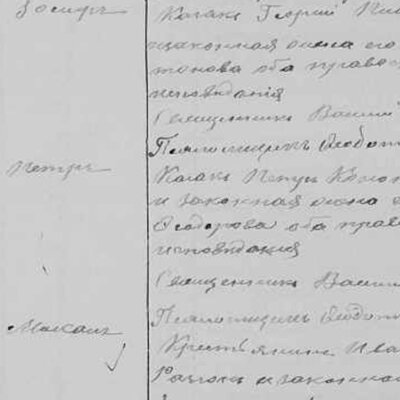 Іосифъ
Казакъ Георгій
и законная жена его
това оба право
исповѣданія
Священникъ Васил
Псаломщикъ Ѳеодот
Петръ
Казакъ Петръ
и законная жена е
Ѳеодорова оба прав
исповѣданія
Священникъ Васил
Псаломщикъ Ѳеодот
Максимъ
Крестьянинъ Ива
и законная